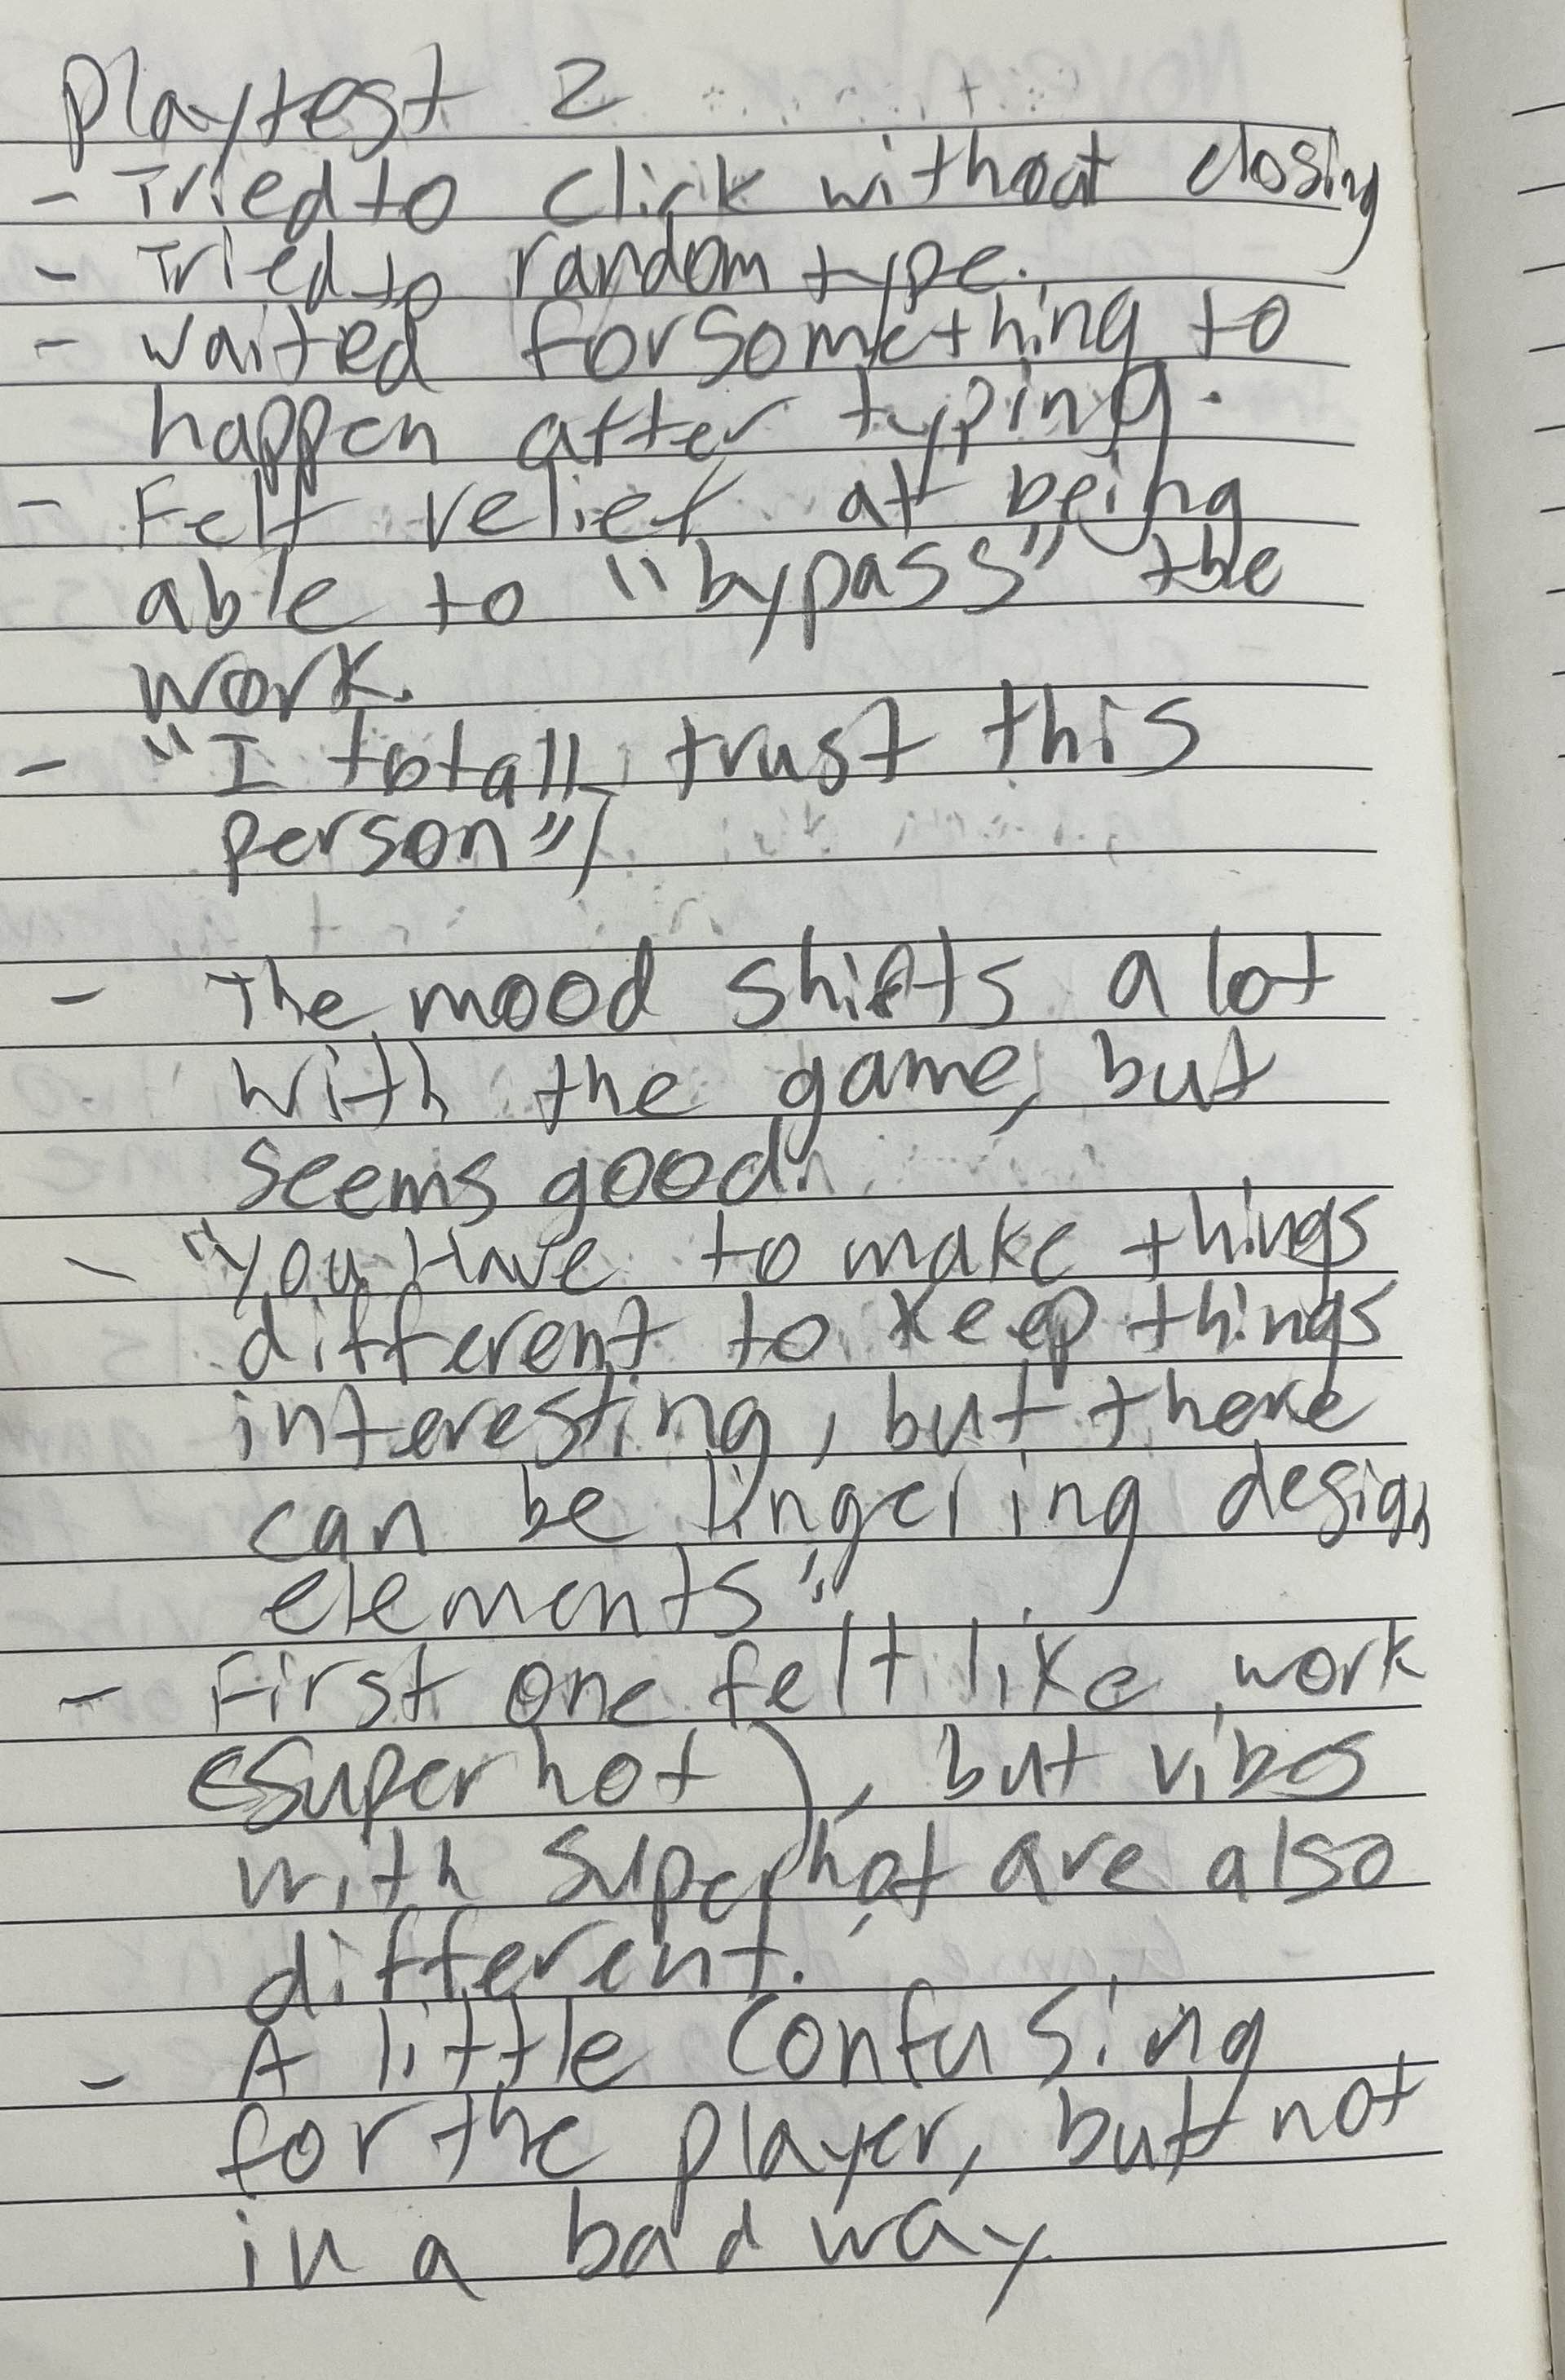 Playtest 2
- Tried to click without closing
- Tried to random type.
- waited for something to
happen after typing.
- Felt relief at being
able to "bypass" the
work.
- "I totally trust this
person"
- The mood shifts a lot
with the game, but
seems good.
- "You Have to make things
different to keep things
interesting, but there
can be lingering design
elements"
- First one felt like work
(superhot), but vibes
with superhot are also
different.
- A little confusing
for the player, but not
in a bad way